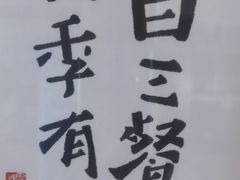 日三餐
季有